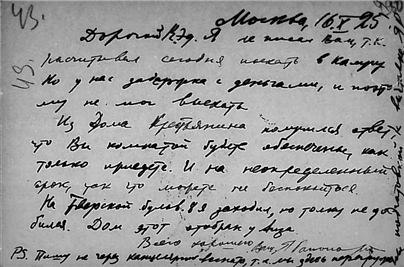 43.
Москва, 16/X 25
Дорогой К.Эд. Я не писал Вам, т.к.
рассчитывал сегодня выехать в Калугу
Но у нас задержка с деньгами, и поэто
му не мог выехать
Из Дома Крестьянина получился ответ
что Вы комнатой будете обеспечены, как
только приедете. И на неопределенный
срок, так что можете не беспокоиться.
На Тверской бульв. 8 я заходил, но толку не до
бился. Дом этот отобран у
Всего хорошего Ваш
P.S. Пишу не через канцелярию т.к. мы здесь
43.